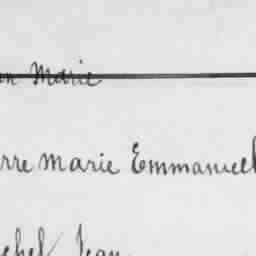 an Marie
rre Marie Emmanuel
chel Jean